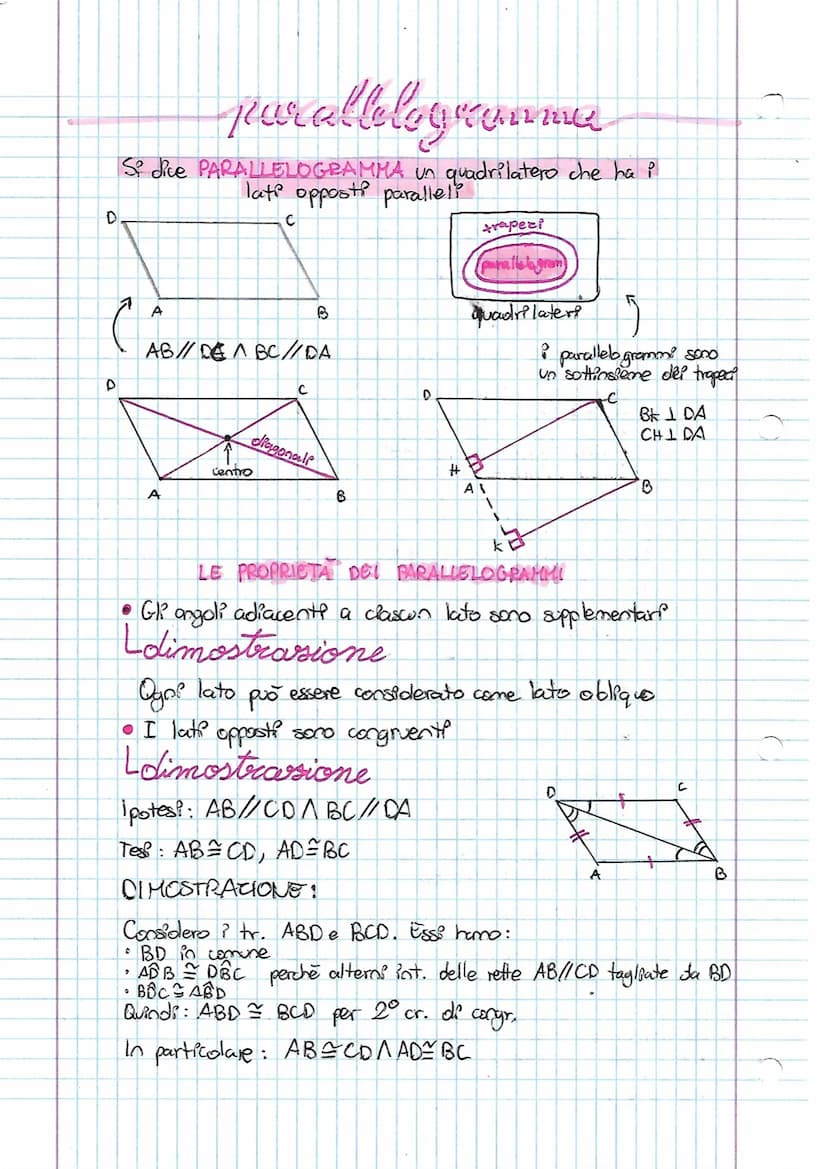 parallelogramma
Si dice PARALLELOGRAMMA un quadrilatero che ha i
lati opposti paralleli
D
C
A
B
AB // DC ∧ BC // DA
trapezi
parallelogrammi
quadrilateri
i parallelogrammi sono
un sottinsieme dei trapezi
D
C
diagonali
centro
A
B
D
C
BK ⊥ DA
CH ⊥ DA
H
A
B
K
LE PROPRIETÀ DEI PARALLELOGRAMMI
• Gli angoli adiacenti a ciascun lato sono supplementari
dimostrazione
Ogni lato può essere considerato come lato obliquo
• I lati opposti sono congruenti
dimostrazione
Ipotesi: AB // CD ∧ BC // DA
Tesi: AB ≅ CD, AD ≅ BC
DIMOSTRAZIONE:
D
C
A
B
Considero i tr. ABD e BCD. Essi hanno:
• BD in comune
• AD̂B ≅ DB̂C perché alterni int. delle rette AB//CD tagliate da BD
• BD̂C ≅ AB̂D
Quindi: ABD ≅ BCD per 2° cr. di congr.
In particolare: AB ≅ CD ∧ AD ≅ BC